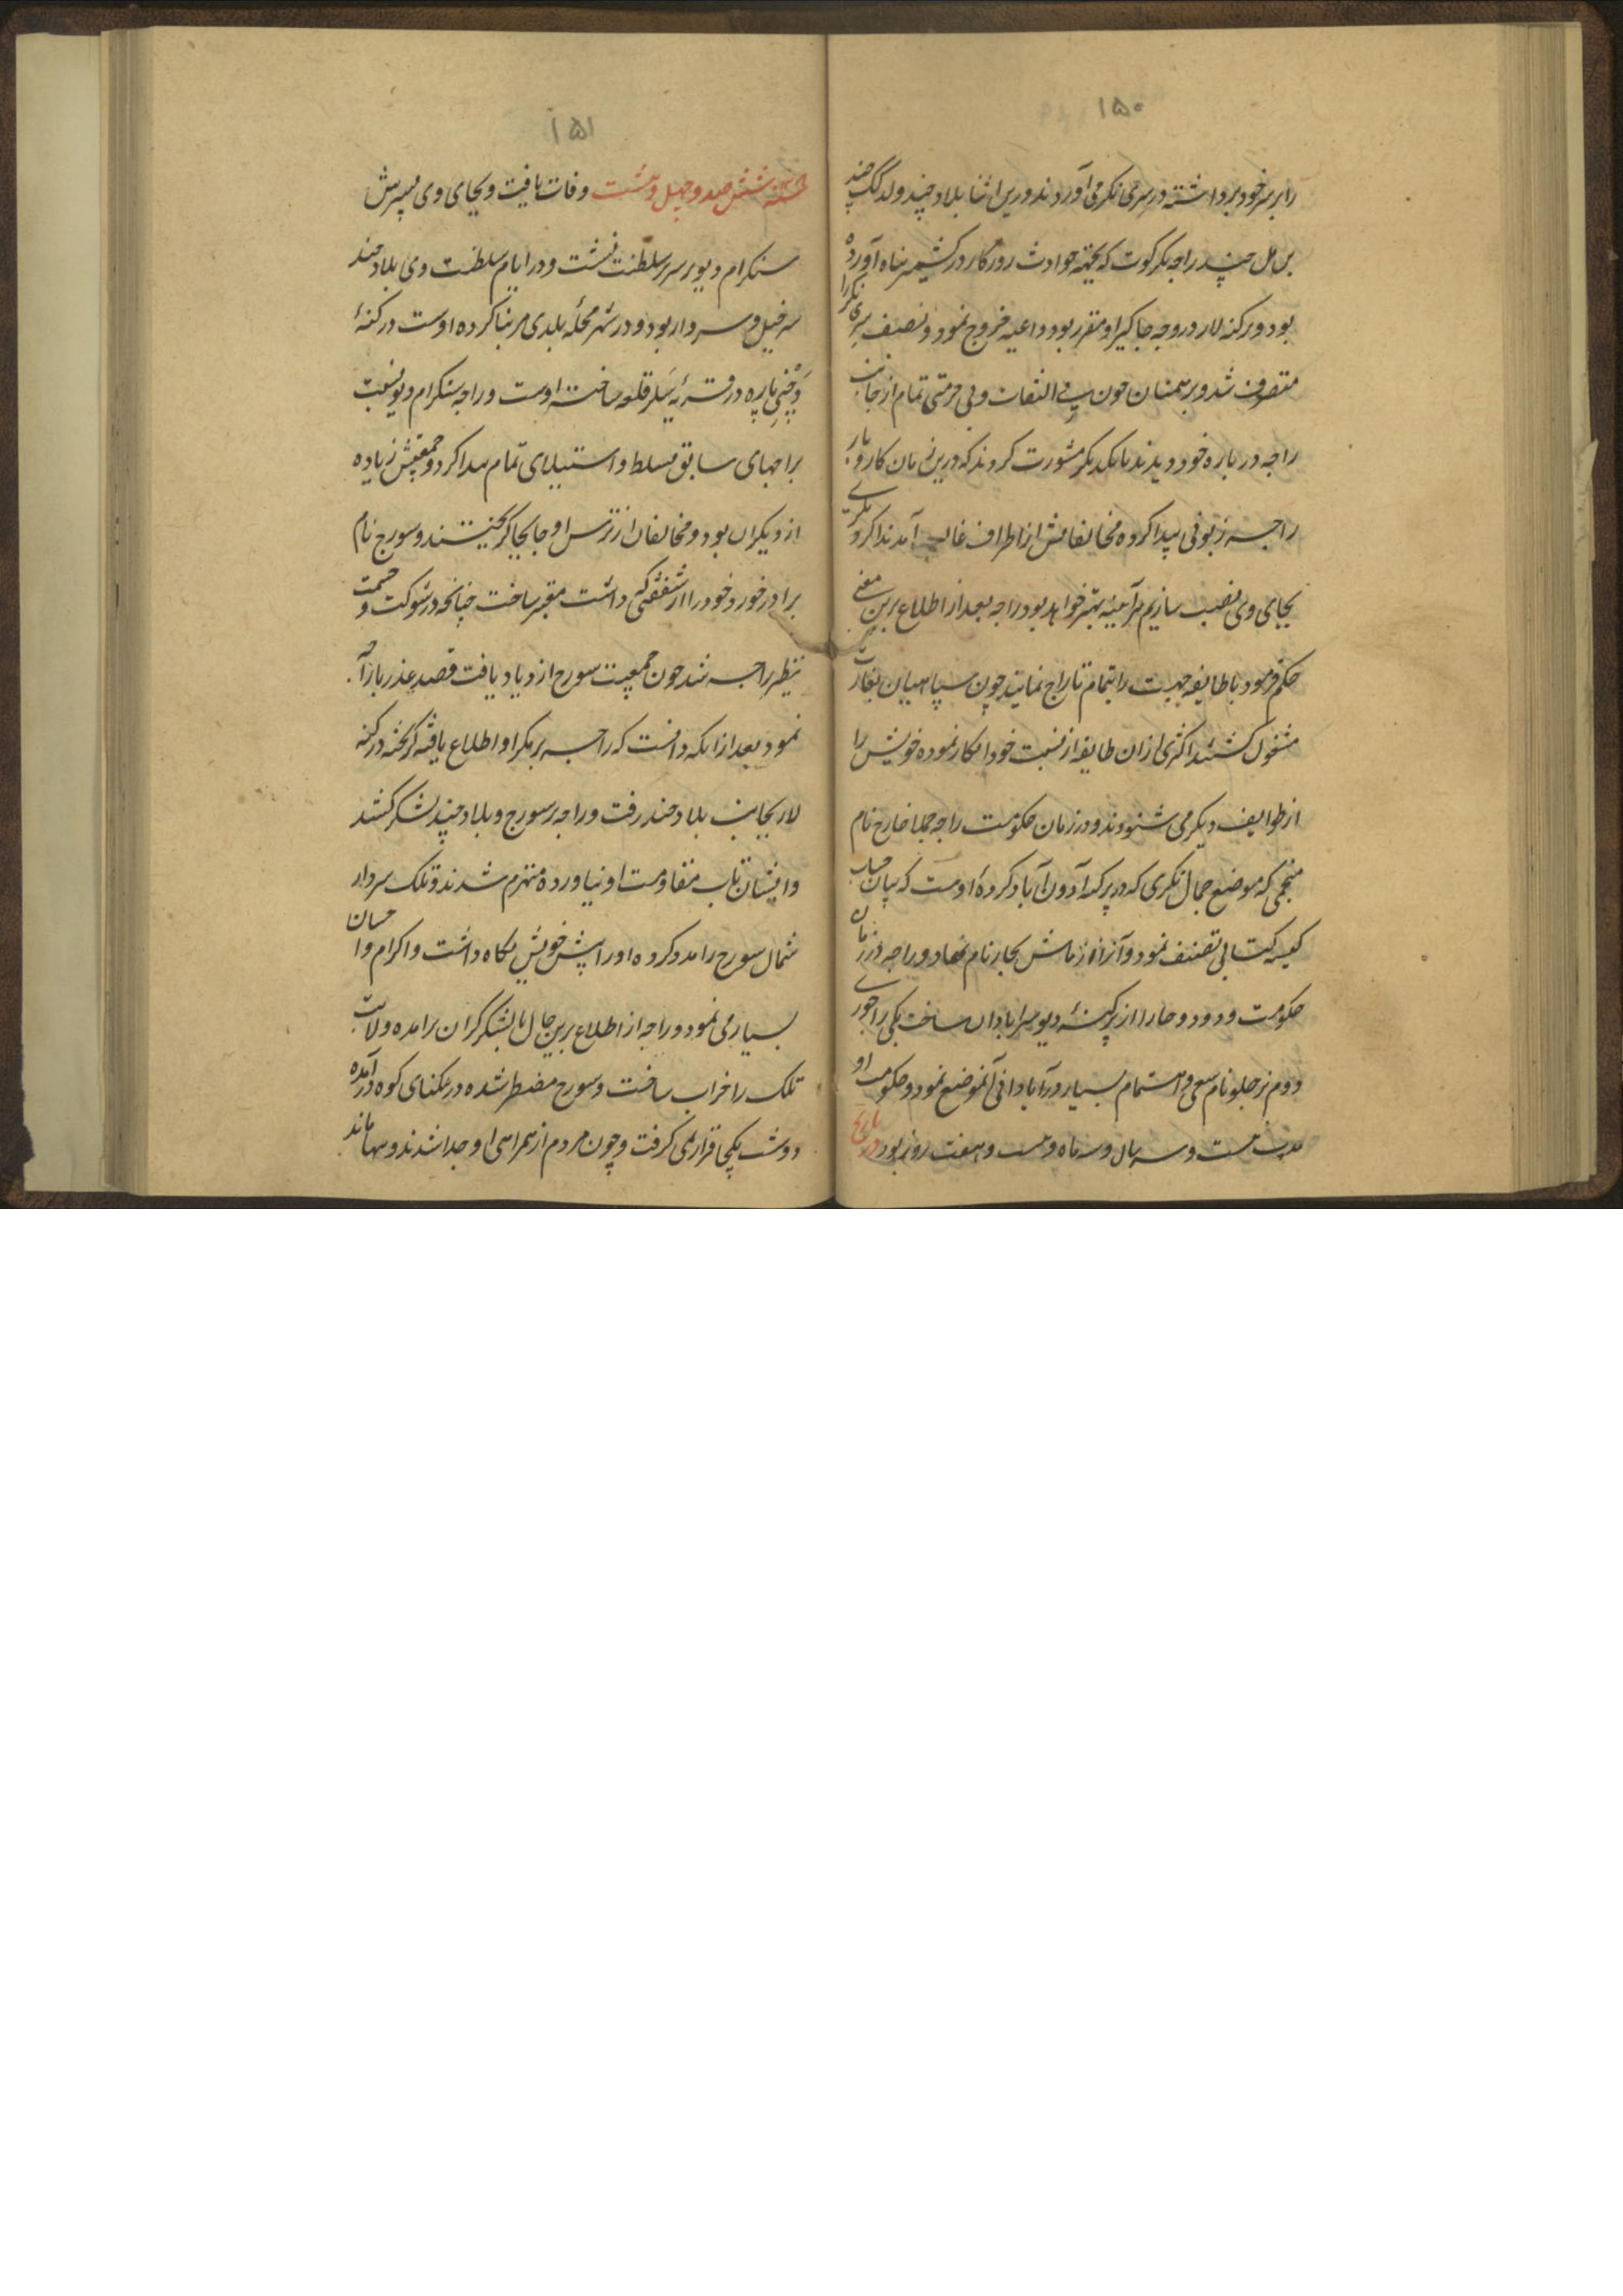 ۱۵۰
را بر سر خود برداشته در سری نکر می آوردند درین اثنا بلاد چند ولد کک چند
بن مل چند راجه نکر کوت که بجهة حوادث روزکار در کشمیر پناه آورده
بود و پرکنه لار در وجه جاکیر او مقرر بود داعیه خروج نمود و نصف سری نکر را
متصرف شد و برهمنان چون بی التفات و بی حرمتی تمام از جانب
راجه در باره خود دیدند با یکدیکر مشورت کردند که درین زمان کار و بار
راجه زبونی پیدا کرده مخالفانش از اطراف غالب آمدند اکر دیکری
بجای وی نصب سازیم هر آیینه بهتر خواهد بود راجه بعد از اطلاع برین معنی
حکم فرمود تا طایفه را بتمام تاراج نمایند چون سپاهیان بغارت
مشغول کشتند اکثری ازان طایفه از نسبت خود انکار نموده خویش را
از طوایف دیکر می شنودند و در زمان حکومت راجه خارخ نام
منجمی که موضع جمال نکری که در پرکنه آدون آباد کرده اوست که بیان حساب
کتابی تصنیف نمود و آنرا نام نهاد و راجه در زمان
حکومت خود دو جا را از پرکنه دیوسر آبادان ساخت یکی راجوری
دوم نام سعی و اهتمام بسیار در آبادانی آنموضع نمود و حکومت او
مدت بیست و سه سال و سه ماه و بیست و هفت روز بود در تاریخ
۱۵۱
سنه ششصد و چهل و هشت وفات یافت و بجای وی پسرش
سنکرام دیو بر سریر سلطنت نشست و در ایام سلطنت وی بلاد چند
سرخیل و سردار بود و در شهر محله بلدی مر بنا کرده اوست در کنهٔ
پاره در قریه قلعه ساخته اوست و راجه سنکرام دیو نسبت
براجهای سابق تسلط و استیلای تمام پیدا کرد و جمعیتش زیاده
از دیکران بود و مخالفان از ترس او جابجا کریختند و سورج نام
برادر خورد خود را از شفقتی که داشت معتبر ساخت چنانچه در شوکت و حشمت
نظیر راجه شد چون جمعیت سورج ازدیاد یافت قصد غدر باراجه
نمود بعد ازانکه دانست که راجه بر مکر او اطلاع یافته کریخته در کنه
لار بجانب بلاد چند رفت و راجه بر سورج و بلاد چند لشکر کشید
و ایشان تاب مقاومت او نیاورده منهزم شدند و تلک سردار
شمال سورج را مدد کرده او را پیش خویش نکاه داشت و اکرام و احسان
بسیار می نمود و راجه از اطلاع برین حال با لشکر کران برآمده ولایت
تلک را خراب ساخت و سورج مضطر شده در تنکنای کوه درآمده
دو شب یکجا قرار نمی کرفت و چون مردم از همراهی او جدا شدند و تنها ماند